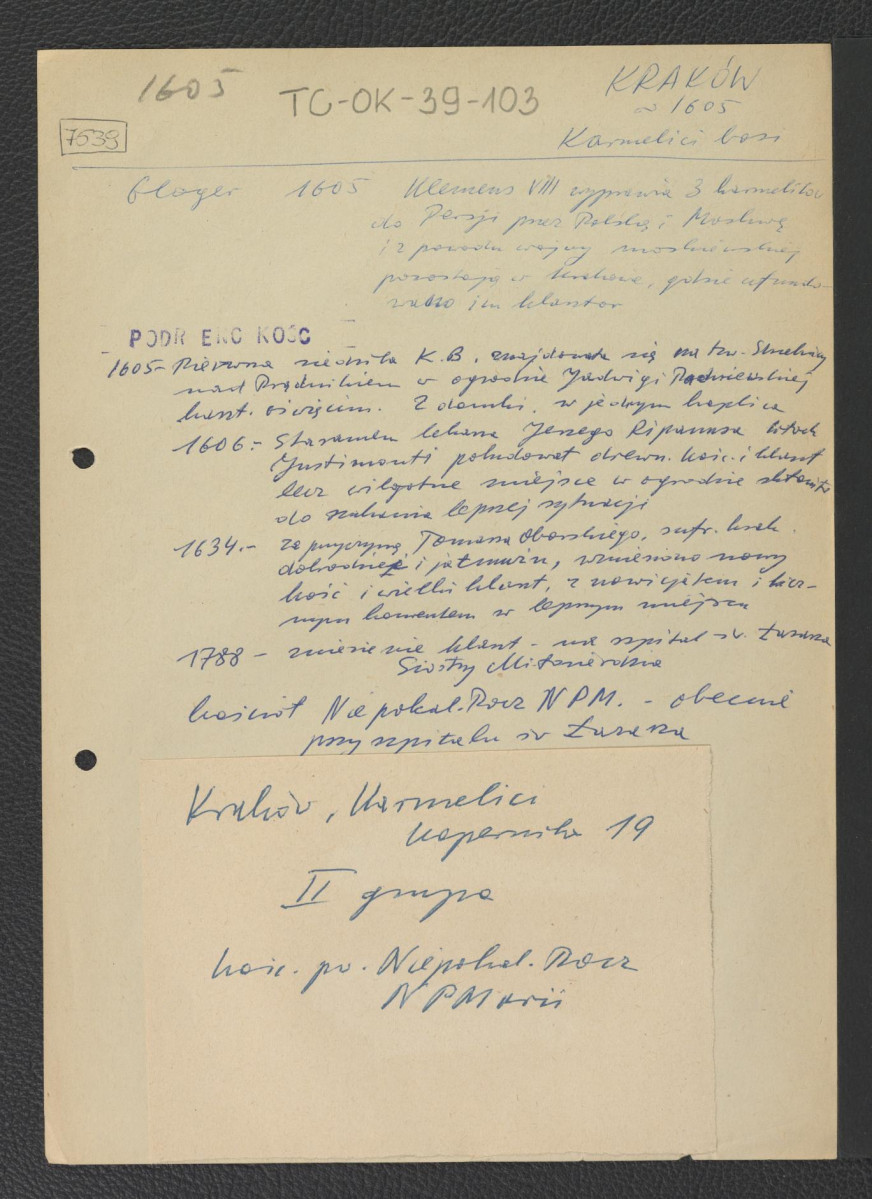 1605
TC-OK-39-103
KRAKÓW
~ 1605
7539
Karmelici bosi
Gloger 1605 Klemens VIII wyprawia 3 karmelitów
do Persji przez Polskę i Moskwę
i z powodu wojny moskiewskiej
pozostają w Krakowie, gdzie ufundo-
wano im klasztor
PODR ENC KOŚC
1605 - Pierwsza siedziba K.B. znajdowała się na tzw. Strzelnicy
nad Prądnikiem w ogrodzie Jadwigi
kaszt. oświęcim. 2 domki, w jednym kaplica
1606.- Staraniem lekarza Jerzego Ripanusa
Justimonti pobudował drewn. kość. i klaszt
lecz wilgotne miejsce w ogrodzie skłoniło
do szukania lepszej sytuacji
1634.- za przyczyną Tomasza Oborskiego, sufr. krak.
i jałmużn, wzniesiono nowy
kość i wielki klaszt, z nowicjatem i licz-
nym konwentem w lepszym miejscu
1788 - zniesienie klaszt - na szpital św. Łazarza
Siostry Miłosierdzia
kościół Niepokal. Pocz NPM. - obecnie
przy szpitalu św Łazarza
Kraków, Karmelici
Kopernika 19
II grupa
kość. pw. Niepokal. Pocz
NPMarii